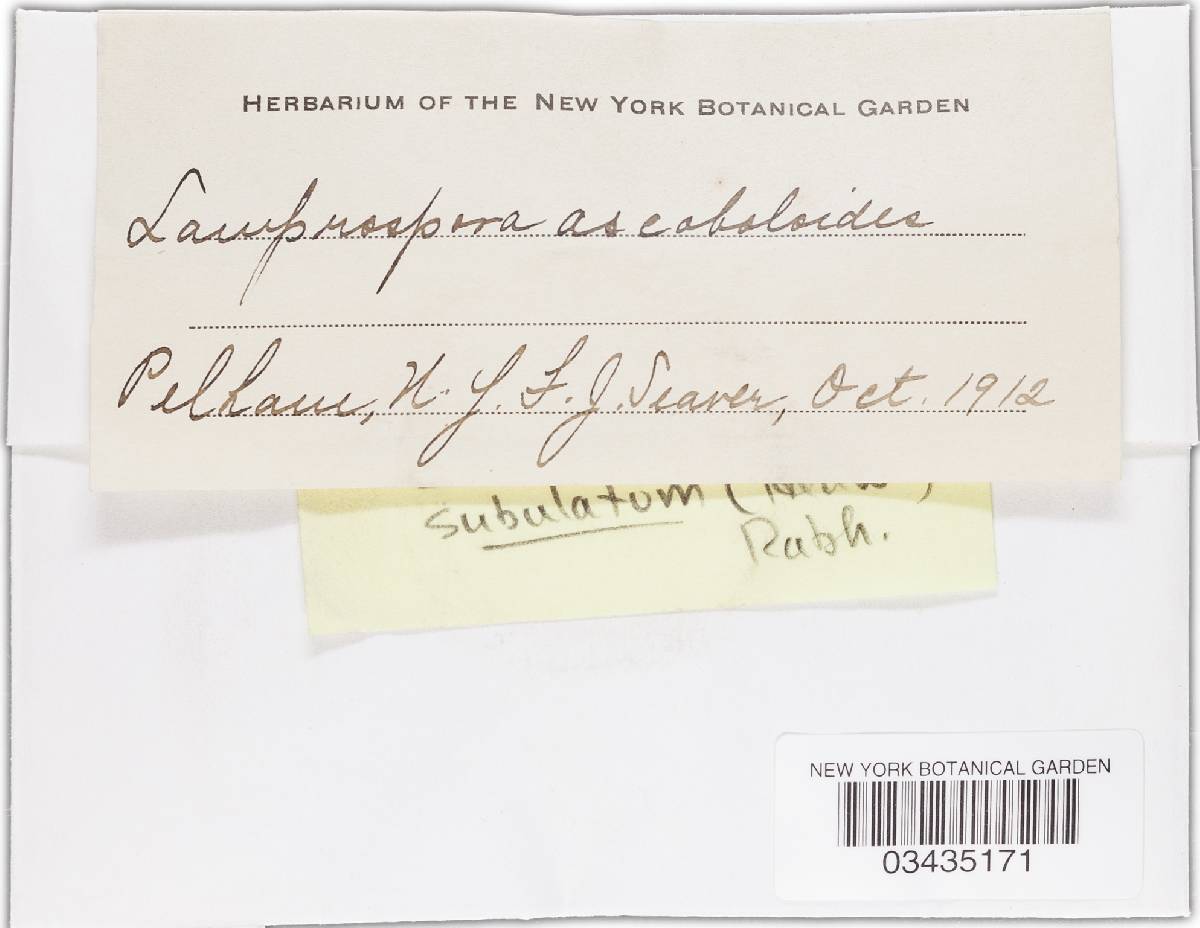 HERBARIUM OF THE NEW YORK BOTANICAL GARDEN
Lamprospora ascoboloides
Pelham, N.Y. F.J. Seaver, Oct. 1912
subulatum (
Rabh.
NEW YORK BOTANICAL GARDEN
03435171